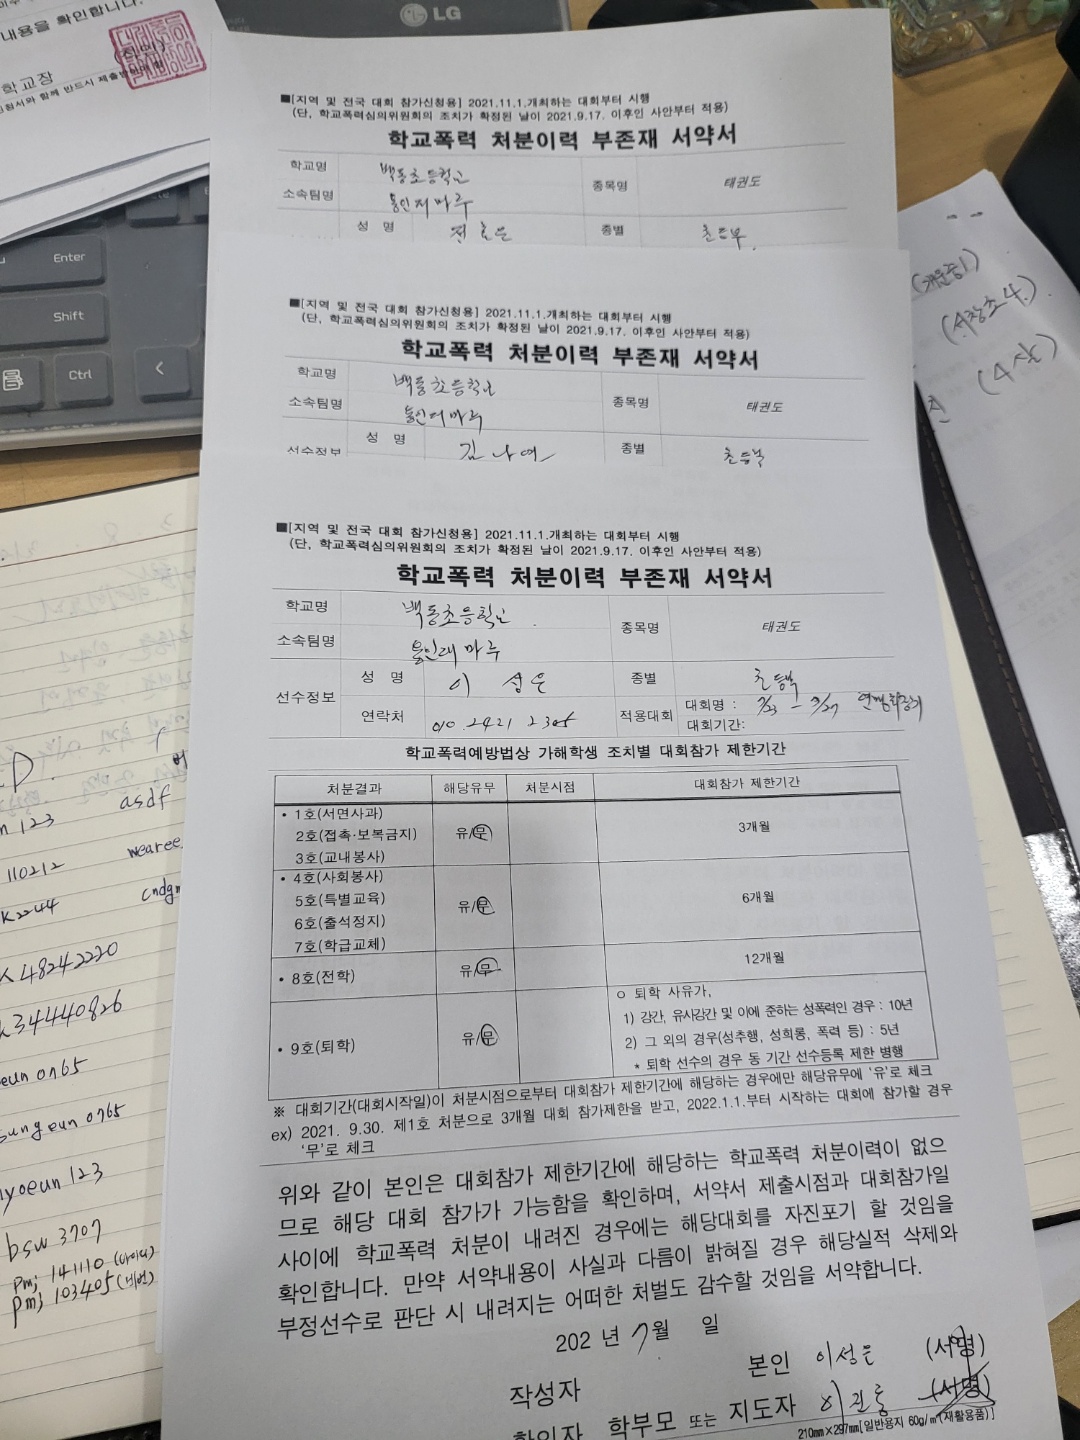 내용을 확인합니다.
학교장
LG
Enter
Shift
Ctrl
■[지역 및 전국 대회 참가신청용] 2021.11.1.개최하는 대회부터 시행
(단, 학교폭력심의위원회의 조치가 확정된 날이 2021.9.17. 이후인 사안부터 적용)
학교폭력 처분이력 부존재 서약서
학교명 백동초등학교
종목명 태권도
소속팀명 용인대마루
성 명
종별 초등부
■[지역 및 전국 대회 참가신청용] 2021.11.1.개최하는 대회부터 시행
(단, 학교폭력심의위원회의 조치가 확정된 날이 2021.9.17. 이후인 사안부터 적용)
학교폭력 처분이력 부존재 서약서
학교명 백동초등학교
종목명 태권도
소속팀명 용인대마루
선수정보 성 명 김나예
종별 초등부
■[지역 및 전국 대회 참가신청용] 2021.11.1.개최하는 대회부터 시행
(단, 학교폭력심의위원회의 조치가 확정된 날이 2021.9.17. 이후인 사안부터 적용)
학교폭력 처분이력 부존재 서약서
학교명 백동초등학교
종목명 태권도
소속팀명 용인대마루
선수정보 성 명 이성은
종별 초등부
연락처 010 2421
적용대회 대회명 :
대회기간:
학교폭력예방법상 가해학생 조치별 대회참가 제한기간
처분결과 해당유무 처분시점 대회참가 제한기간
• 1호(서면사과)
2호(접촉·보복금지) 유/무 3개월
3호(교내봉사)
• 4호(사회봉사)
5호(특별교육) 유/무 6개월
6호(출석정지)
7호(학급교체)
• 8호(전학) 유/무 12개월
• 9호(퇴학) 유/무
ㅇ 퇴학 사유가,
1) 강간, 유사강간 및 이에 준하는 성폭력인 경우 : 10년
2) 그 외의 경우(성추행, 성희롱, 폭력 등) : 5년
* 퇴학 선수의 경우 동 기간 선수등록 제한 병행
※ 대회기간(대회시작일)이 처분시점으로부터 대회참가 제한기간에 해당하는 경우에만 해당유무에 '유'로 체크
ex) 2021. 9.30. 제1호 처분으로 3개월 대회 참가제한을 받고, 2022.1.1.부터 시작하는 대회에 참가할 경우
'무'로 체크
위와 같이 본인은 대회참가 제한기간에 해당하는 학교폭력 처분이력이 없으
므로 해당 대회 참가가 가능함을 확인하며, 서약서 제출시점과 대회참가일
사이에 학교폭력 처분이 내려진 경우에는 해당대회를 자진포기 할 것임을
확인합니다. 만약 서약내용이 사실과 다름이 밝혀질 경우 해당실적 삭제와
부정선수로 판단 시 내려지는 어떠한 처벌도 감수할 것임을 서약합니다.
202 년 7월 일
작성자 본인 이성은 (서명)
확인자 학부모 또는 지도자 (서명)
210㎜×297㎜[일반용지 60g/㎡(재활용품)]
asdf
123
110212
wearee
48242220
34440826
eun 0765
sungeun 0765
hyoeun 123
bsw 3707
pmj 141110 (아이디)
pmj 103405 (비번)